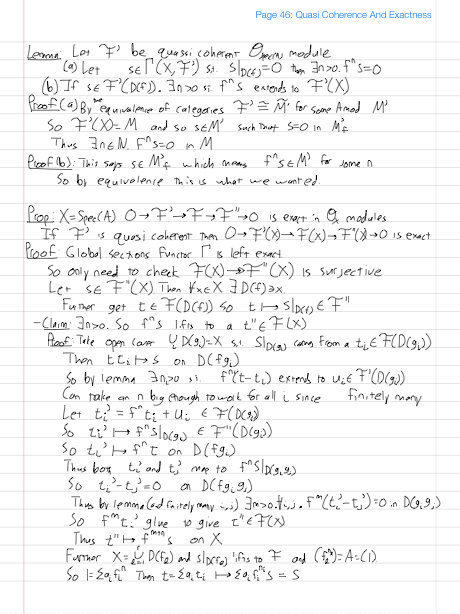 Page 46: Quasi Coherence And Exactness
Lemma: Let F' be quasi coherent O_Spec(A) module
(a) Let s∈Γ(X,F') s.t. s|_D(f)=0 then ∃n>0. fⁿs=0
(b) If s∈F'(D(f)). ∃n>0 s.t. fⁿs extends to F'(X)
Proof(a) By the equivalence of categories F' ≅ M̃' for some A mod M'
So F'(X)=M and so s∈M' such that s=0 in M'_f
Thus ∃n∈ℕ. fⁿs=0 in M
Proof(b): This says s∈M'_f which means fⁿs∈M' for some n
So by equivalence this is what we wanted.
Prop: X=Spec(A) 0→F'→F→F''→0 is exact in O_X modules
If F' is quasi coherent then 0→F'(X)→F(X)→F''(X)→0 is exact
Proof: Global sections functor Γ is left exact
So only need to check F(X)→F''(X) is surjective
Let s∈F''(X) Then ∀x∈X ∃D(f)∋x.
Further get t∈F(D(f)) so t↦s|_D(f)∈F''
-Claim: ∃n>0. So fⁿs lifts to a t''∈F(X)
Proof: Take open cover ∪D(g_i)=X s.t. s|_D(g_i) comes from a t_i∈F(D(g_i))
Then t,t_i↦s on D(fg_i)
So by lemma ∃n>0 s.t. fⁿ(t-t_i) extends to u_i∈F'(D(g_i))
Can take an n big enough to work for all i since finitely many
Let t_i'=fⁿt_i+u_i ∈F(D(g_i))
So t_i'↦fⁿs|_D(g_i) ∈F''(D(g_i))
So t_i'↦fⁿt on D(fg_i)
Thus both t_i' and t_j' map to fⁿs|_D(g_ig_j)
So t_i'-t_j'=0 on D(fg_ig_j)
Thus by lemma (and finitely many i,j) ∃m>0.∀i,j. f^m(t_i'-t_j')=0 in D(g_ig_j)
So f^m t_i' glue to give t''∈F(X)
Thus t''↦f^{m+n}s on X
Further X=∪D(f_i) and s|_D(f_i) lifts to F and (f_i^n)=A=(1)
So 1=Σa_if_iⁿ Then t=Σa_it_i ↦Σa_if_iⁿs=s